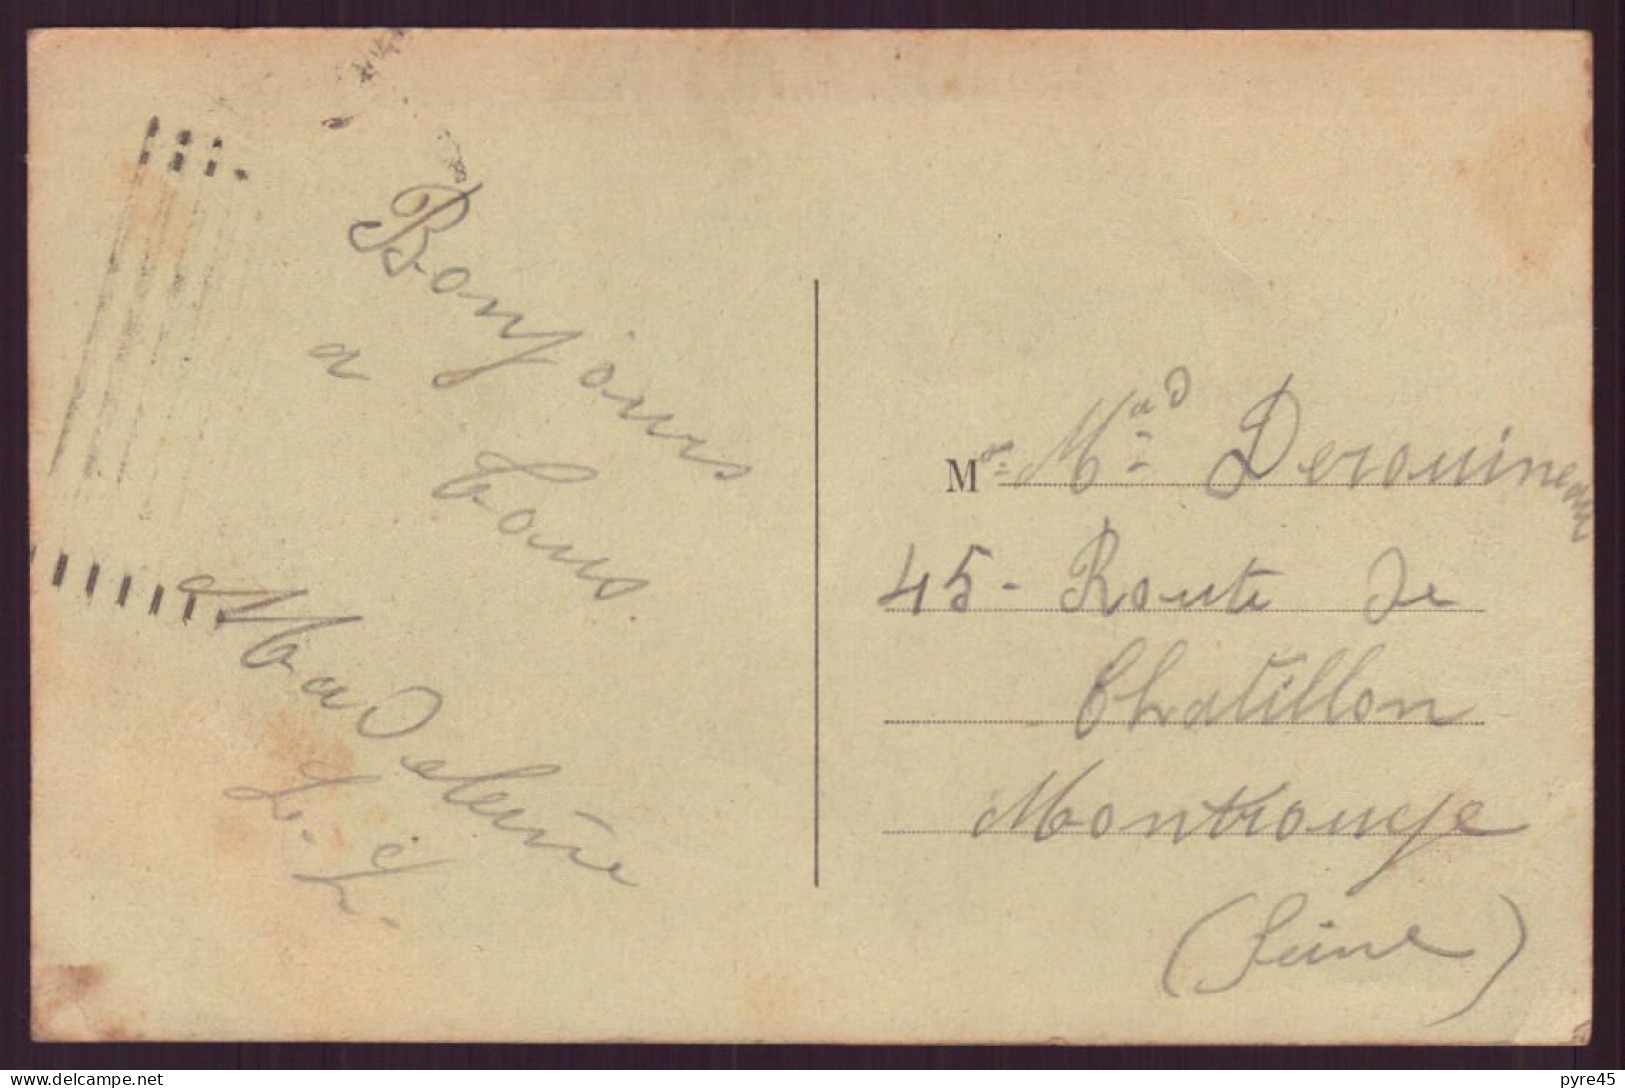 Bonjours
a tous.
Madeleine
M Mad Derouineau
45 - Route de
Chatillon
Montrouge
(Seine)
delcampe.net
pyre45